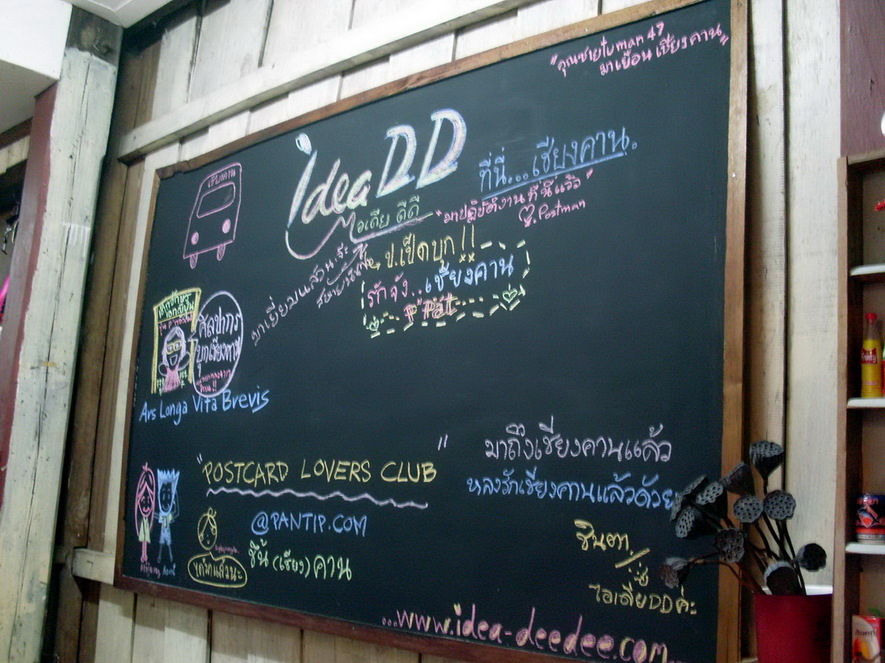 "คุณชายโบman 49
มาเยือนเชียงคาน"
idea DD
ที่นี่...เชียงคาน.
ไอเดีย ดีดี
"มาปฏิบัติงานที่นี่แล้ว"
Postman
เชียงคาน
ป.เป็ดบุก!!
รักจัง..เชียงคาน
ศิลปากร
บุกเชียงคาน
Ars Longa Vita Brevis
"POSTCARD LOVERS CLUB"
@PANTIP.COM
ชีช้ (เชียง) คาน
มาถึงเชียงคานแล้ว
หลงรักเชียงคานแล้วด้วย
ไอเดียDDค่ะ
...www.idea-deedee.com...